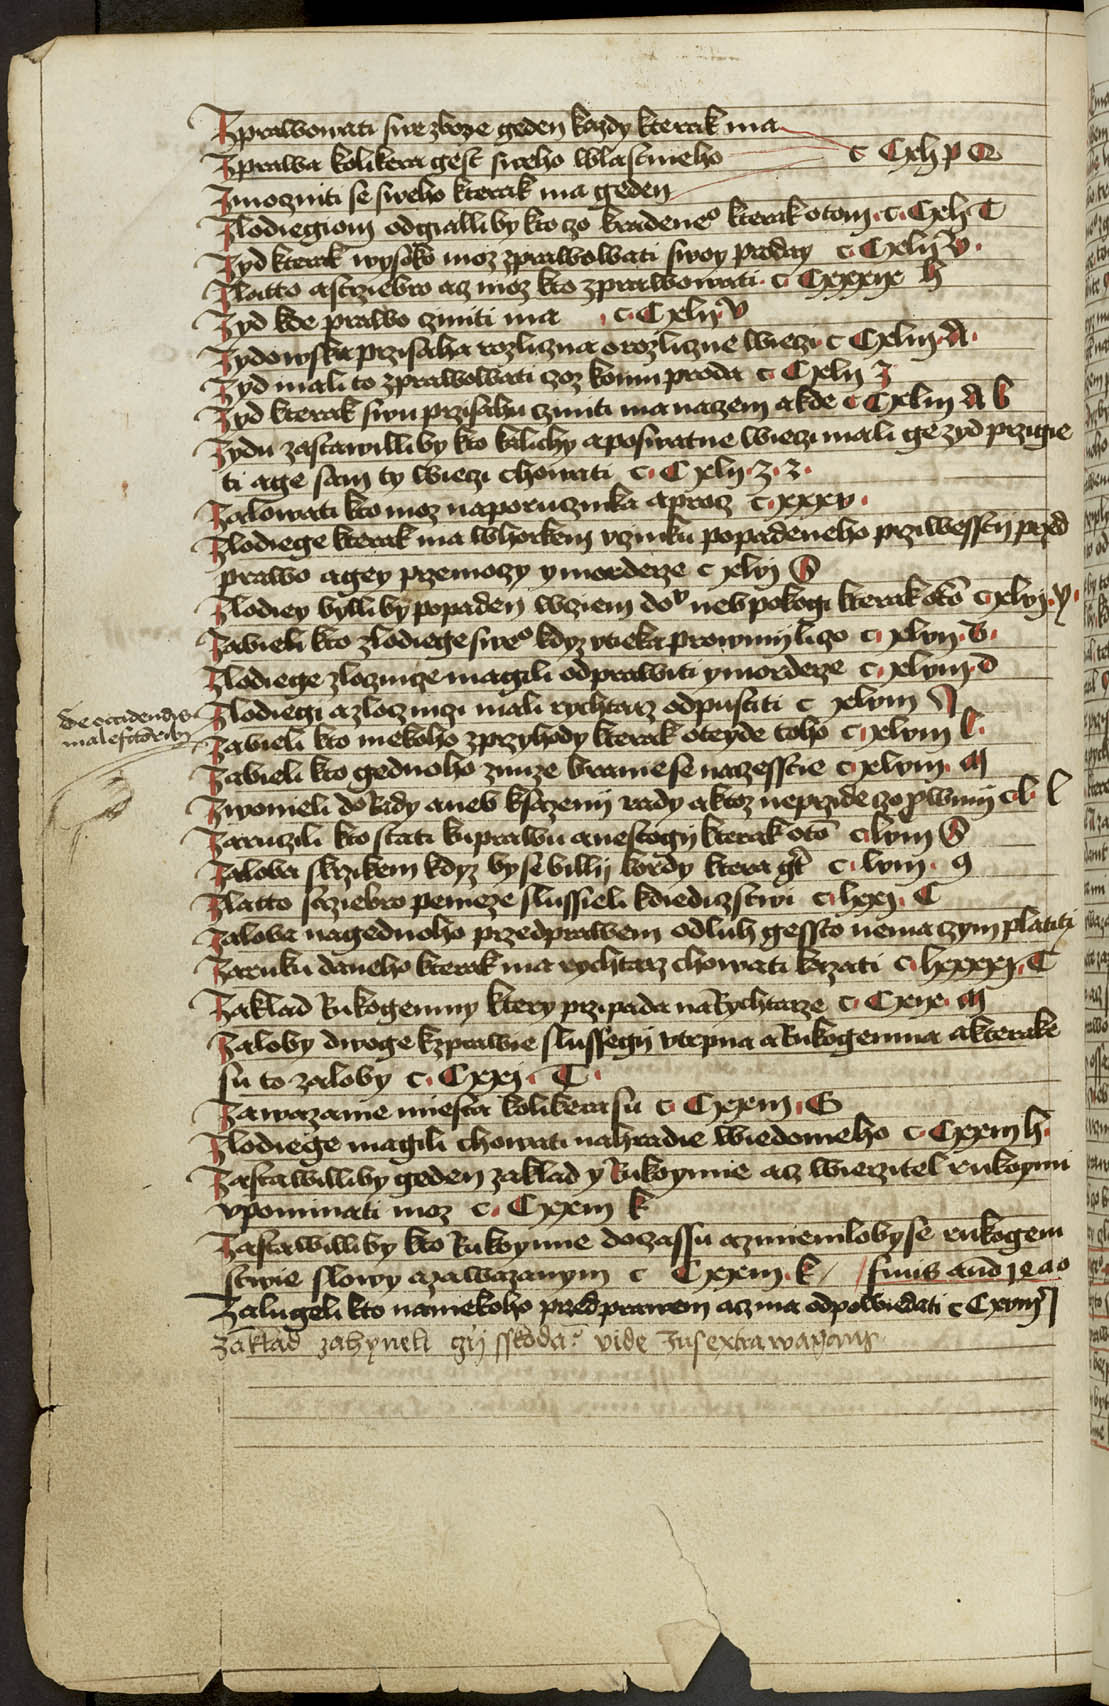 Zprawowati swe zboze geden kazdy kterak ma
Zprawa kolikera gest sweho wlastnieho c Cxlij p Q
Zmoczniti se sweho kterak ma geden
Zlodiegiom odgialliby kto czo kradeneo kterak o tom c. Cxlj. C
Zyd kterak wysoko moz zprawowati swoy proday c Cxlij V.
Zlatto a strziebro acz moz kto zprawowati c Cxxxix h
Zyd kde prawo cziniti ma c. Cxlij. V
Zydowska przisaha rozliczna o rozliczne wieczi c Cxliij. A.
Zyd mali to zprawowati czoz komu proda c Cxlij I
Zyd kterak swu przisahu cziniti ma naczem a kde c Cxliij A b
Zydu zastawilliby kto kalichy a poswatne wieczi mali ge zyd przigie
ti a ge sam ty wieczi chowati c. C xlij. z. z.
Zalowati kto moz na porucznika a procz c. xxxv.
Zlodiege kterak ma w horkem vczinku popadeneho prziwessty przed
prawo a gey przemoczy y morderze c xlvj S
Zlodiey bylliby popaden w cziem do neb pokogi kterak oto c. xlvij. y.
Zabieli kto zlodiege sweo kdyz vtieka prowinijliczo c. xlvij. V.
Zlodiege zloczincze magili odprawiti y morderze c. xlviij. D
Zlodiegi a zloczinczi mali rychtarz odpustiti c xlviij A
De occidendis
malefactoribus
Zabieli kto niekoho z przyhody kterak oteyde toho c. xlviij l.
Zabieli kto gednoho z mnze branie se na czesscie c. xlviij. M
Zwonieli do Rady aneb k sczenij rady a ktoz neprzide czo pwinij c. l. l
Zaruczili kto stati ku prawu a nestogij kterak oto c. lviij S
Zaloba s krzikem kdyz by se billij kordy ktera gt c. lviij. q
Zlatto strziebro penieze slussieli k diediczstwi c. lxxj. C
Zaloba na gednoho przed prawem o dluh gessto nema czym platiti
Zaruku daneho kterak ma rychtarz chowati wzati c. lxxxxj. C
Zaklad Rukogemny ktery przipada na Rychtarze c. Cxix. M
Zaloby dwoge k zprawie slussegij vtrpna a Rukogemna a kterake
su to zaloby c. Cxxj. T.
Zawazanie miesta kolikera su c. Cxxiij. G
Zlodiege magili chowati na hradie wiedomeho c. Cxxiij h.
Zastawilliby geden zaklad y Rukoymie acz wierzitel rukoymi
vpominati moz c. Cxxiij k
Zastawilliby kto Rukoymie do czassu a zmiemloby se rukogem
stwie slowy a zawazanym c Cxxiij. k finis
Zalugeli kto na niekoho przed prawem acz ma odpowiedati c Cxviij I
Zaklad zahyneli czij sskoda? vide Jus extrawagans